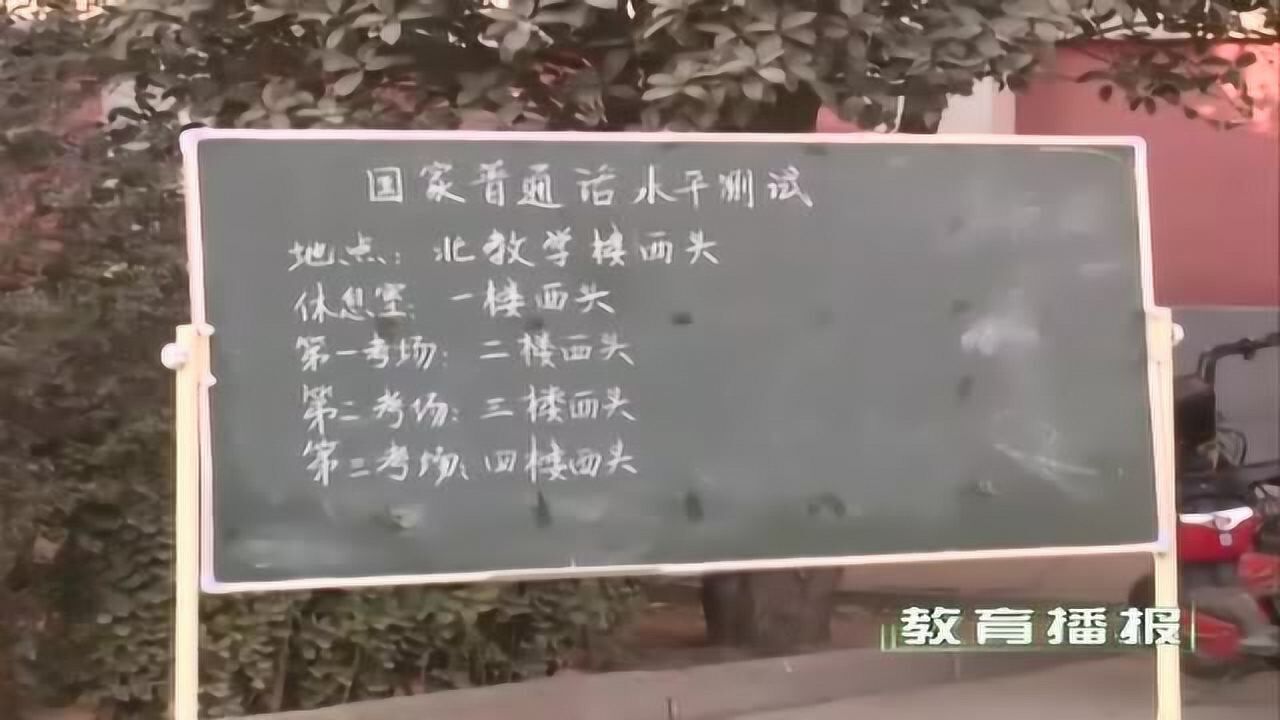 国家普通话水平测试
地点：北教学楼西头
休息室：一楼西头
第一考场：二楼西头
第二考场：三楼西头
第三考场：四楼西头
教育播报